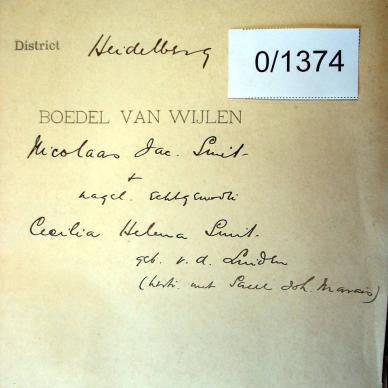 District Heidelberg
0/1374
BOEDEL VAN WIJLEN
Nicolaas Jac. Smit
+
nagel. echtgenoote
Cecilia Helena Smit
geb. v. d. Linden
(hertr. met Paul Joh. Marais)